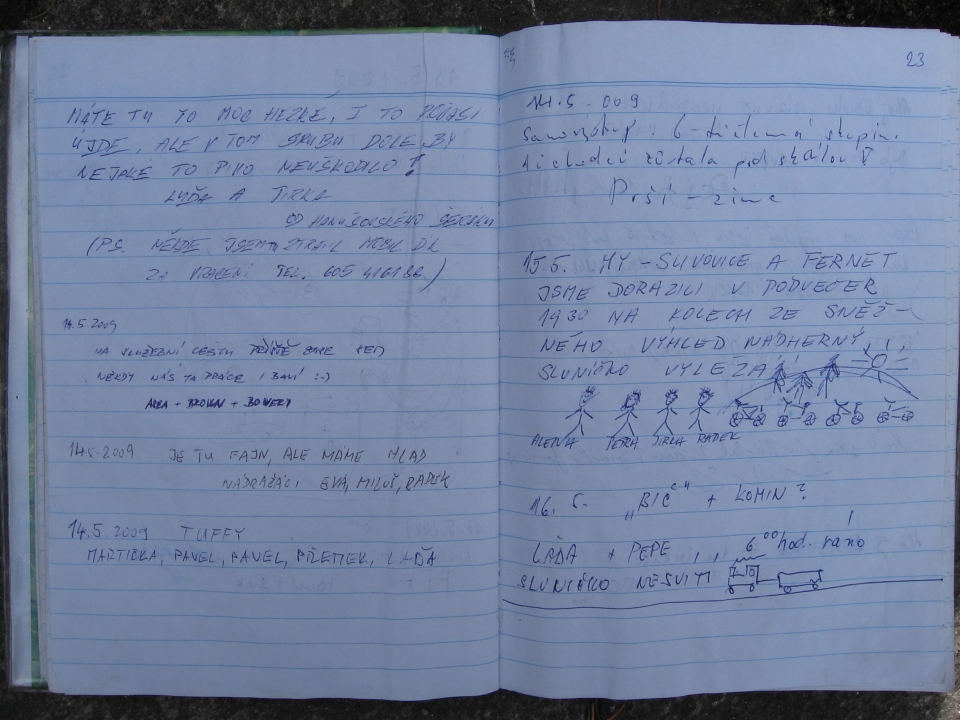 MÁTE TU TO MOC HEZKÉ, I TO POČASÍ
ÚJDE, ALE V TOM SRUBU DOLE BY
NEJAKÉ TO PIVO NEUŠKODILO!
LYĎA A JIRKA
OD
(PS. NĚKDE JSEM ZTRATIL MOBIL DÍK
ZA VRÁCENÍ TEL. 605
14.5.2009
NA SLUŽEBNÍ CESTU
NĚKDY NÁS TA PRÁCE I BAVÍ :-)
14.5.2009 JE TU FAJN, ALE MÁME HLAD
NÁDRAŽÁCI EVA, MILUŠ, RADEK
14.5.2009 TUFFY
MARTIČKA, PAVEL, PAVEL, PŘEMEK, LAĎA
23
14.5.009
Samovýstup 6-tičlenná skupin.
zůstala pod skálou
Prší - zima
15.5. MY - SLIVOVICE A FERNET
JSME DORAZILI V PODVEČER
1930 NA KOLECH ZE SNĚŽ-
NÉHO VÝHLED NÁDHERNÝ,
SLUNÍČKO VYLÉZÁ
ALENA PETRA JIRKA RADEK
16.5. „BIČ" + KOMIN?
LÁĎA + PEPE, , 6 00 hod. ráno!
SLUNÍČKO NESVÍTÍ